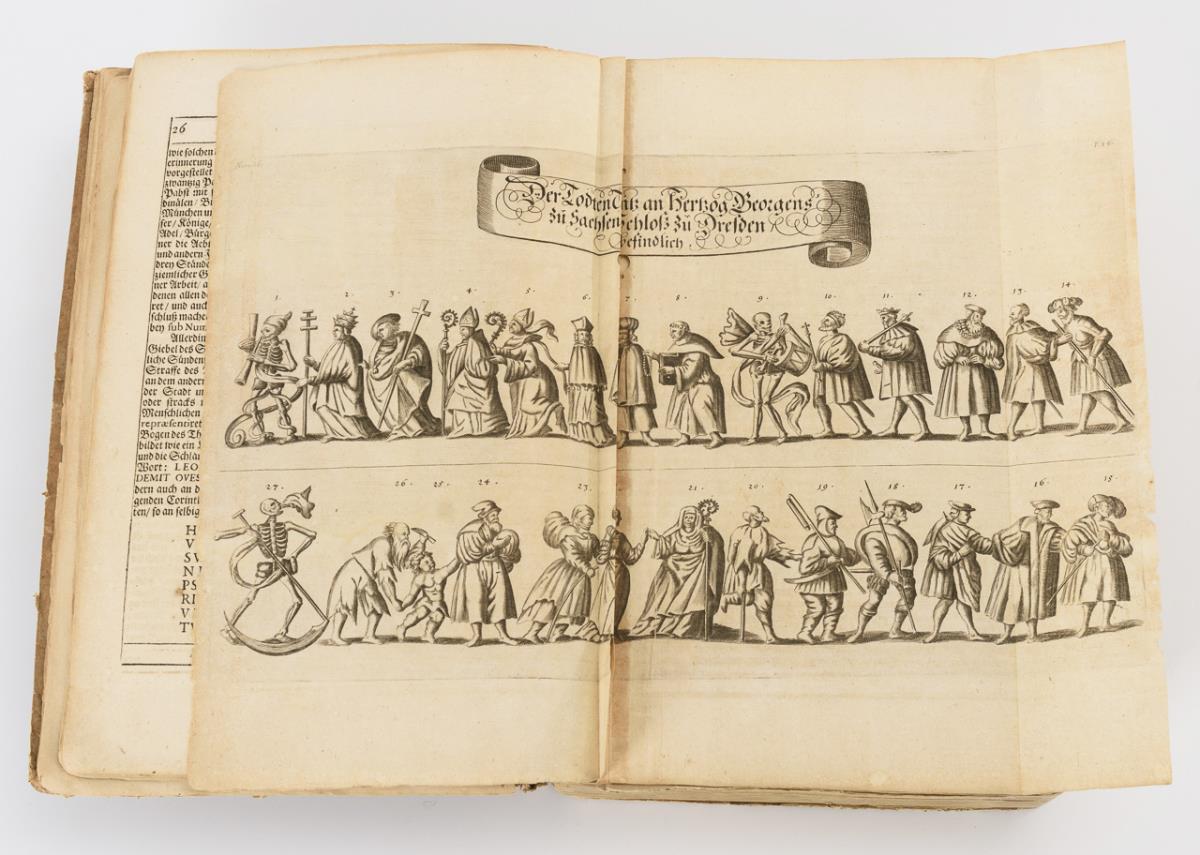 26
wie solchen
erinnerung
vorgestellet
zwantzig Pe
Pabst mit
dinälen/ Bi
München un
ser/ Könige/
Adel/ Bürge
ner die Acht
und andern
drey Stände
ziemlicher G
ner Arbeit/ a
denen allen de
ret/ und auch
schluß mache
bey sub Num
Allerdin
Giebel des S
liche Sünden
Straffe des
an dem ander
der Stadt un
oder stracks
Menschlichen
repræsentiret
Bogen des Th
bildet wie ein
und die Schla
Wort: LEO
DEMIT OVES
dern auch an d
genden Corint
ten/ so an selbig
H
V
SV
N
PS
RI
V
TV
Der Todten Tantz an Hertzog Georgens
zü Sachsen Schloß zü Dresden
befindlich.
1. 2. 3. 4. 5. 6. 7. 8. 9. 10. 11. 12. 13. 14.
27. 26. 25. 24. 23. 21. 20. 19. 18. 17. 16. 15.